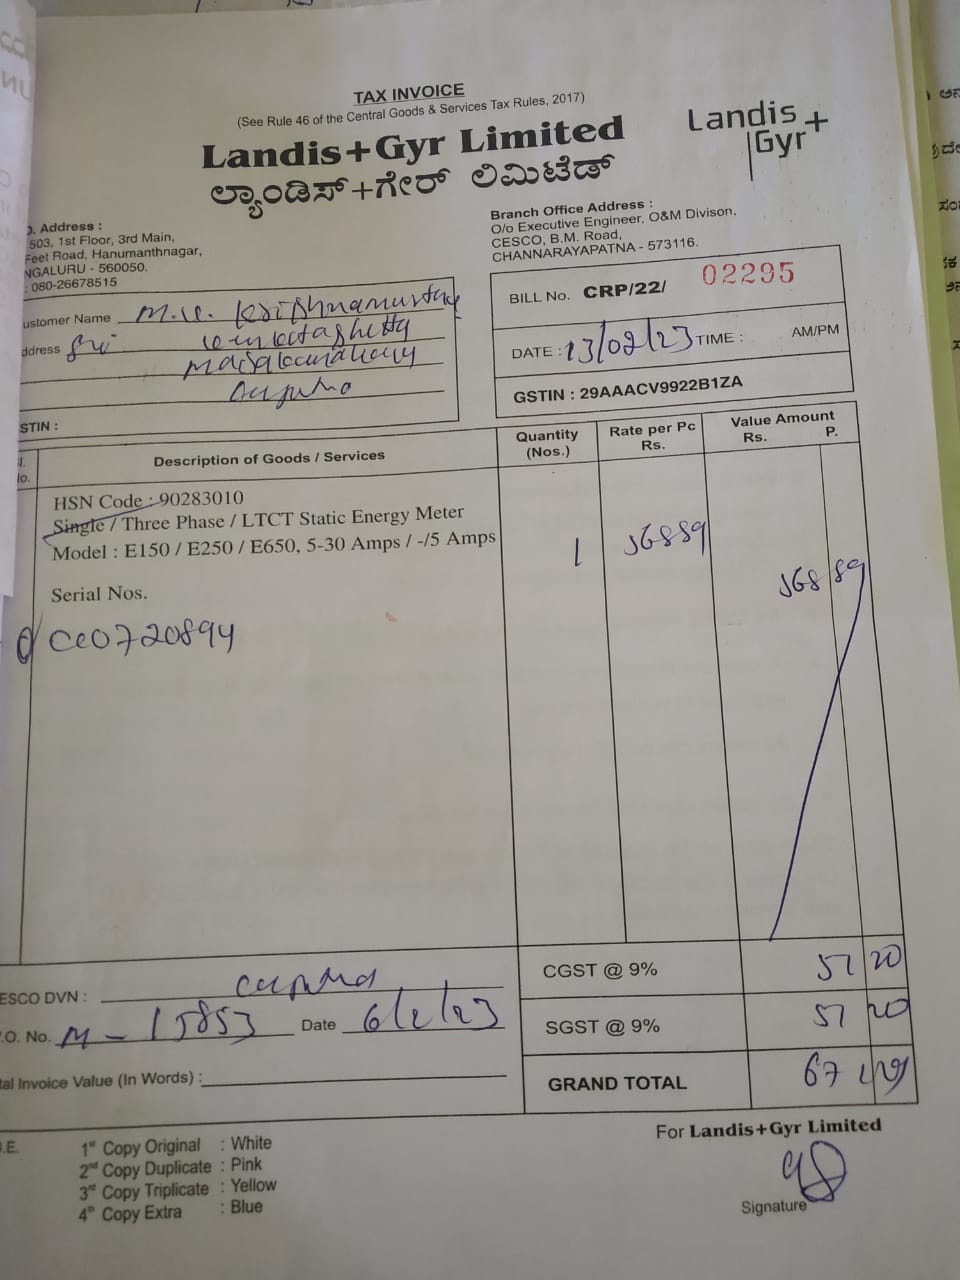 TAX INVOICE
(See Rule 46 of the Central Goods & Services Tax Rules, 2017)
Landis+Gyr Limited
ಲ್ಯಾಂಡಿಸ್+ಗೇರ್ ಲಿಮಿಟೆಡ್
Landis+
Gyr
Address :
503, 1st Floor, 3rd Main,
Feet Road, Hanumanthnagar,
NGALURU - 560050.
: 080-26678515
Branch Office Address :
O/o Executive Engineer, O&M Divison,
CESCO, B.M. Road,
CHANNARAYAPATNA - 573116.
ustomer Name M.V. Krishnamurthy
ddress
STIN :
BILL No. CRP/22/ 02295
DATE : 13/02/23 TIME : AM/PM
GSTIN : 29AAACV9922B1ZA
Description of Goods / Services
Quantity (Nos.)
Rate per Pc Rs.
Value Amount Rs. P.
HSN Code : 90283010
Single / Three Phase / LTCT Static Energy Meter
Model : E150 / E250 / E650, 5-30 Amps / -/5 Amps
1
Serial Nos.
0720894
CGST @ 9% 51 20
SGST @ 9% 51 20
GRAND TOTAL
ESCO DVN :
.O. No. M - 15853 Date 6/2/23
tal Invoice Value (In Words) :
For Landis+Gyr Limited
Signature
O.E.
1st Copy Original : White
2nd Copy Duplicate : Pink
3rd Copy Triplicate : Yellow
4th Copy Extra : Blue